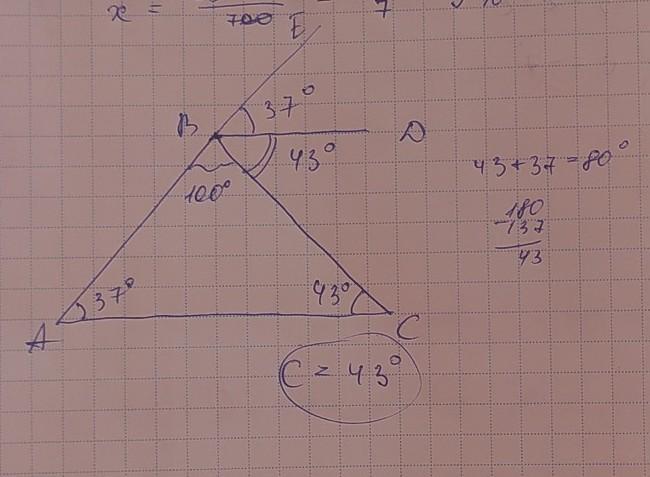 x = 700 7
E
37°
B D
43°
100°
43 + 37 = 80°
180
- 137
43
37° 43°
A C
C = 43°